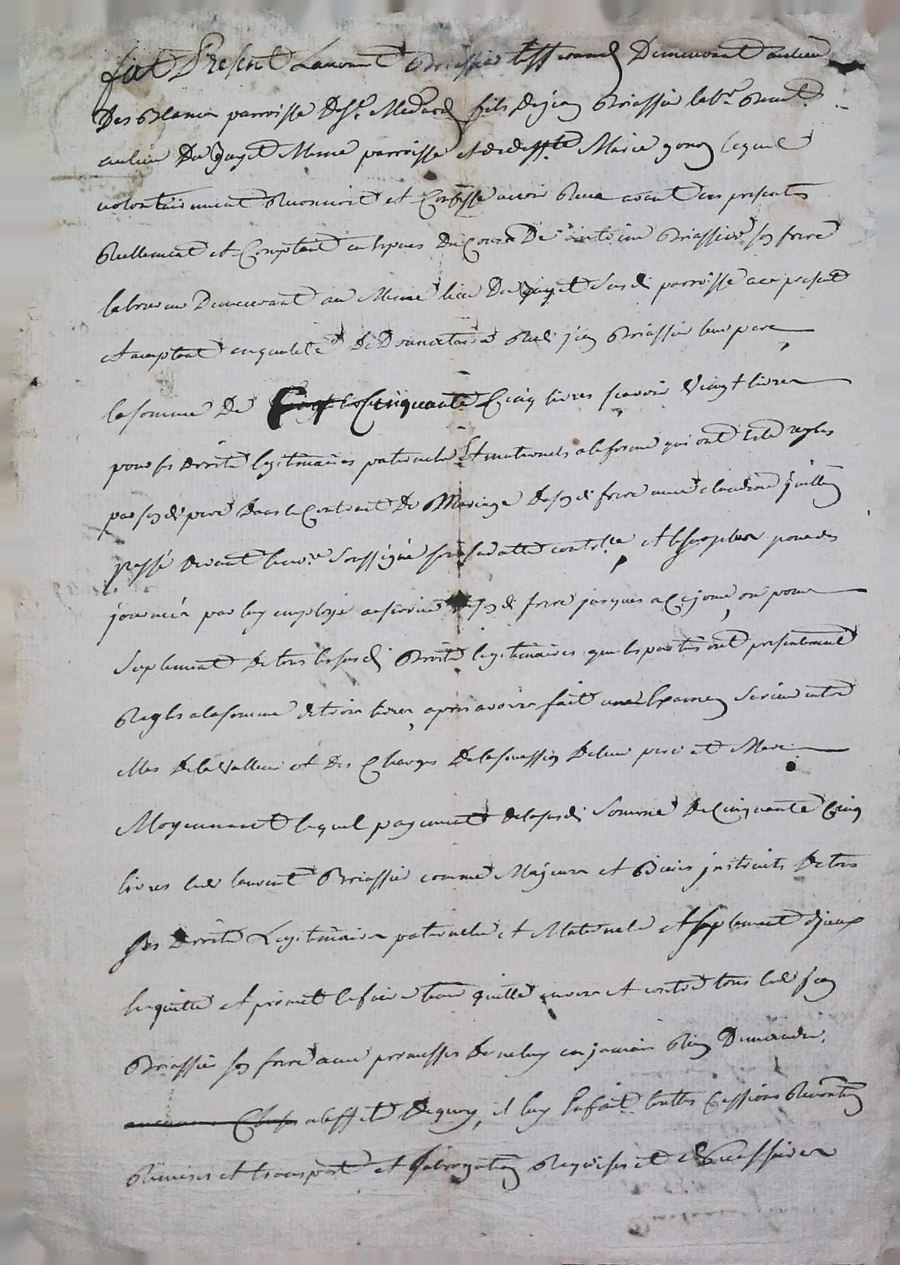 fut Present Laurent Briassie tisserand Demeurant au lieu
Des parroisse De St. Medard fils de jean Briassie lab.r
au lieu Du Meme parroisse et de deffte Marie lequel
volontairement Reconnoit et Confesse avoir Receu avant ces presentes
Reellement et Comptant en Du Cours De antoine Briassie son frere
laboureur Demeurant au Meme lieu Du susd parroisse ace present
et aceptant en qualité De Donnataire Dud jean Briassie leur pere
la somme De Cinquante Cinq livres scavoir Vingt livres
pour ses Droits legitimaires paternels Et maternels a la forme qui ont esté reglés
par son d pere Dans le Contrait De Mariage De son d frere avec claudine jullien
passé devant le no.re Soussigné sous sa datte controllé, et le surplus pour des
journées par luy employé au service De son d frere jusques a Ce jour, ou pour
Suplement De tous les susd Droits legitimaires que les parties ont presentement
Reglés a la somme de trois livres, apres avoir fait un Examen Serieux entre
elles De la Valleur et Des Charges De la sucession De leur pere et Mere
Moyennant lequel payement de la susd Somme De Cinquante Cinq
livres led laurent Briassie comme Majeur et Bien instruit De tous
ses Droits Legitimaires paternels et Maternels et suplement d'jceux
le quitte et promet le faire tenir quitte envers et contre tous led jean
Briassie son frere avec promesses De ne luy en jamais Rien Demander.
a l'effet De quoy, il luy a fait touttes Cessions
Remises et transport et subrogation Requises et Necessaires